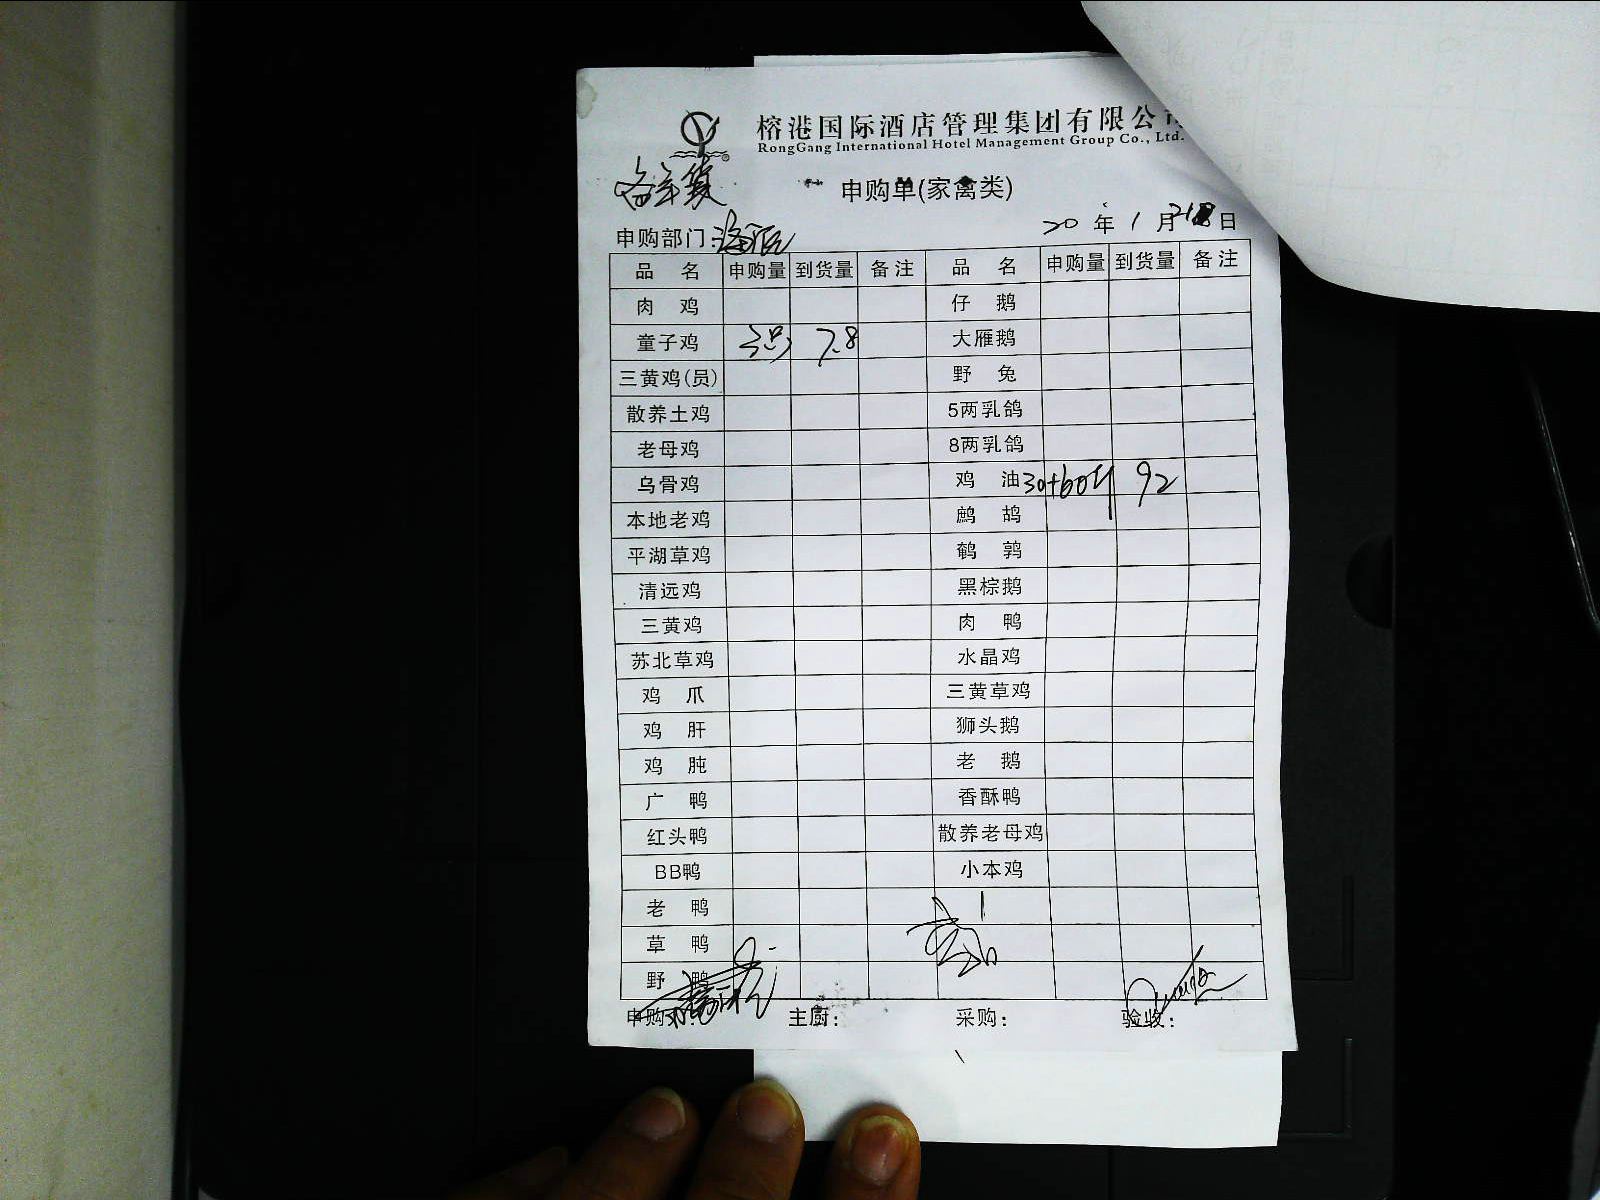 榕港国际酒店管理集团有限公司
RongGang International Hotel Management Group Co., Ltd.
备年货
申购单(家禽类)
20 年 1 月 21 日
申购部门:
品 名 申购量 到货量 备注 品 名 申购量 到货量 备注
肉 鸡 仔 鹅
童子鸡 3只 7.8 大雁鹅
三黄鸡(员) 野 兔
散养土鸡 5两乳鸽
老母鸡 8两乳鸽
乌骨鸡 鸡 油 30+60斤 92
本地老鸡 鹧 鸪
平湖草鸡 鹌 鹑
清远鸡 黑棕鹅
三黄鸡 肉 鸭
苏北草鸡 水晶鸡
鸡 爪 三黄草鸡
鸡 肝 狮头鹅
鸡 肫 老 鹅
广 鸭 香酥鸭
红头鸭 散养老母鸡
BB鸭 小本鸡
老 鸭
草 鸭
野 鸭
申购人: 主厨: 采购: 验收: